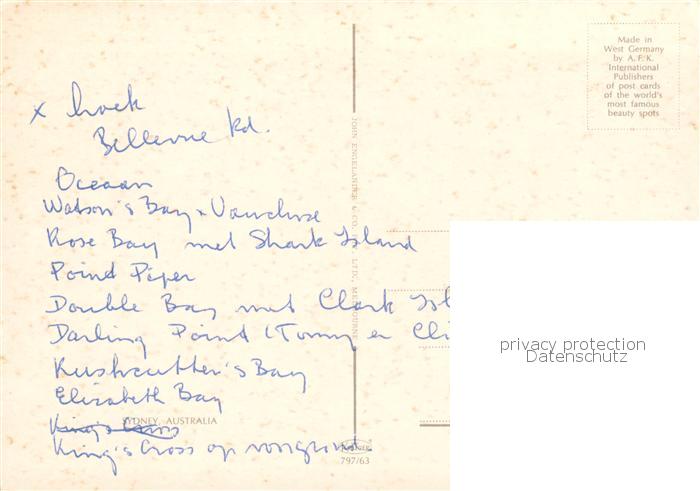 x hoek
Bellevue Rd.
Oceaan
Watson's Bay + Vaucluse
Rose Bay met Shark Island
Point Piper
Double Bay met Clark Isl
Darling Point (Tommy en Cli
Rushcutter's Bay
Elizabeth Bay
King's Cross
King's Cross op voorgrond.
SYDNEY, AUSTRALIA
JOHN ENGELANDER & CO. PTY. LTD., MELBOURNE
797/63
Made in
West Germany
by A.F.K.
International
Publishers
of post cards
of the world's
most famous
beauty spots
privacy protection
Datenschutz